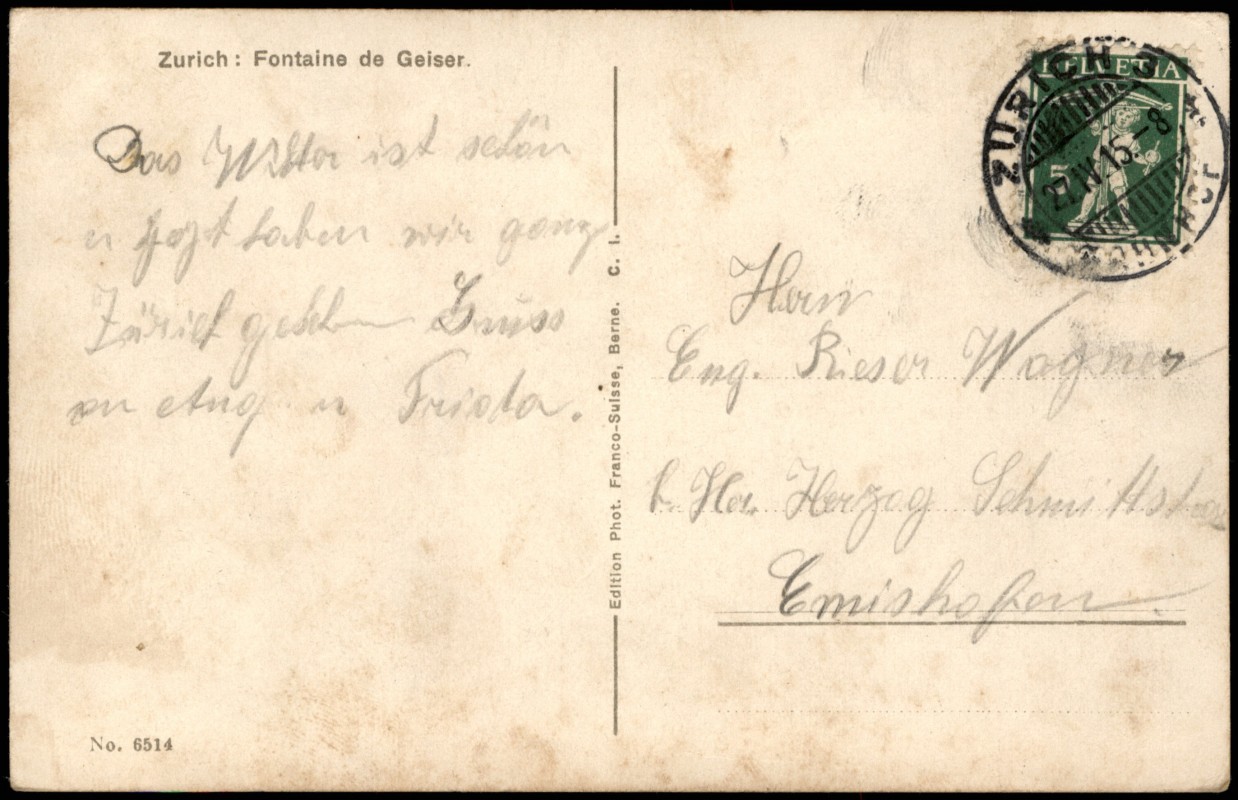 Zurich : Fontaine de Geiser.
Das Wetter ist schön
u jezt haben wir ganz
Zürich gesehen Gruss
von Aug u Frida.
No. 6514
Edition Phot. Franco-Suisse, Berne. C. I.
HELVETIA
5
ZÜRICH 3
27.IV.15.-8
BAHNHOF
Herrn
Eug. Rieser Wagner
b. Hr. Herzog Schmittstr
Emishofen